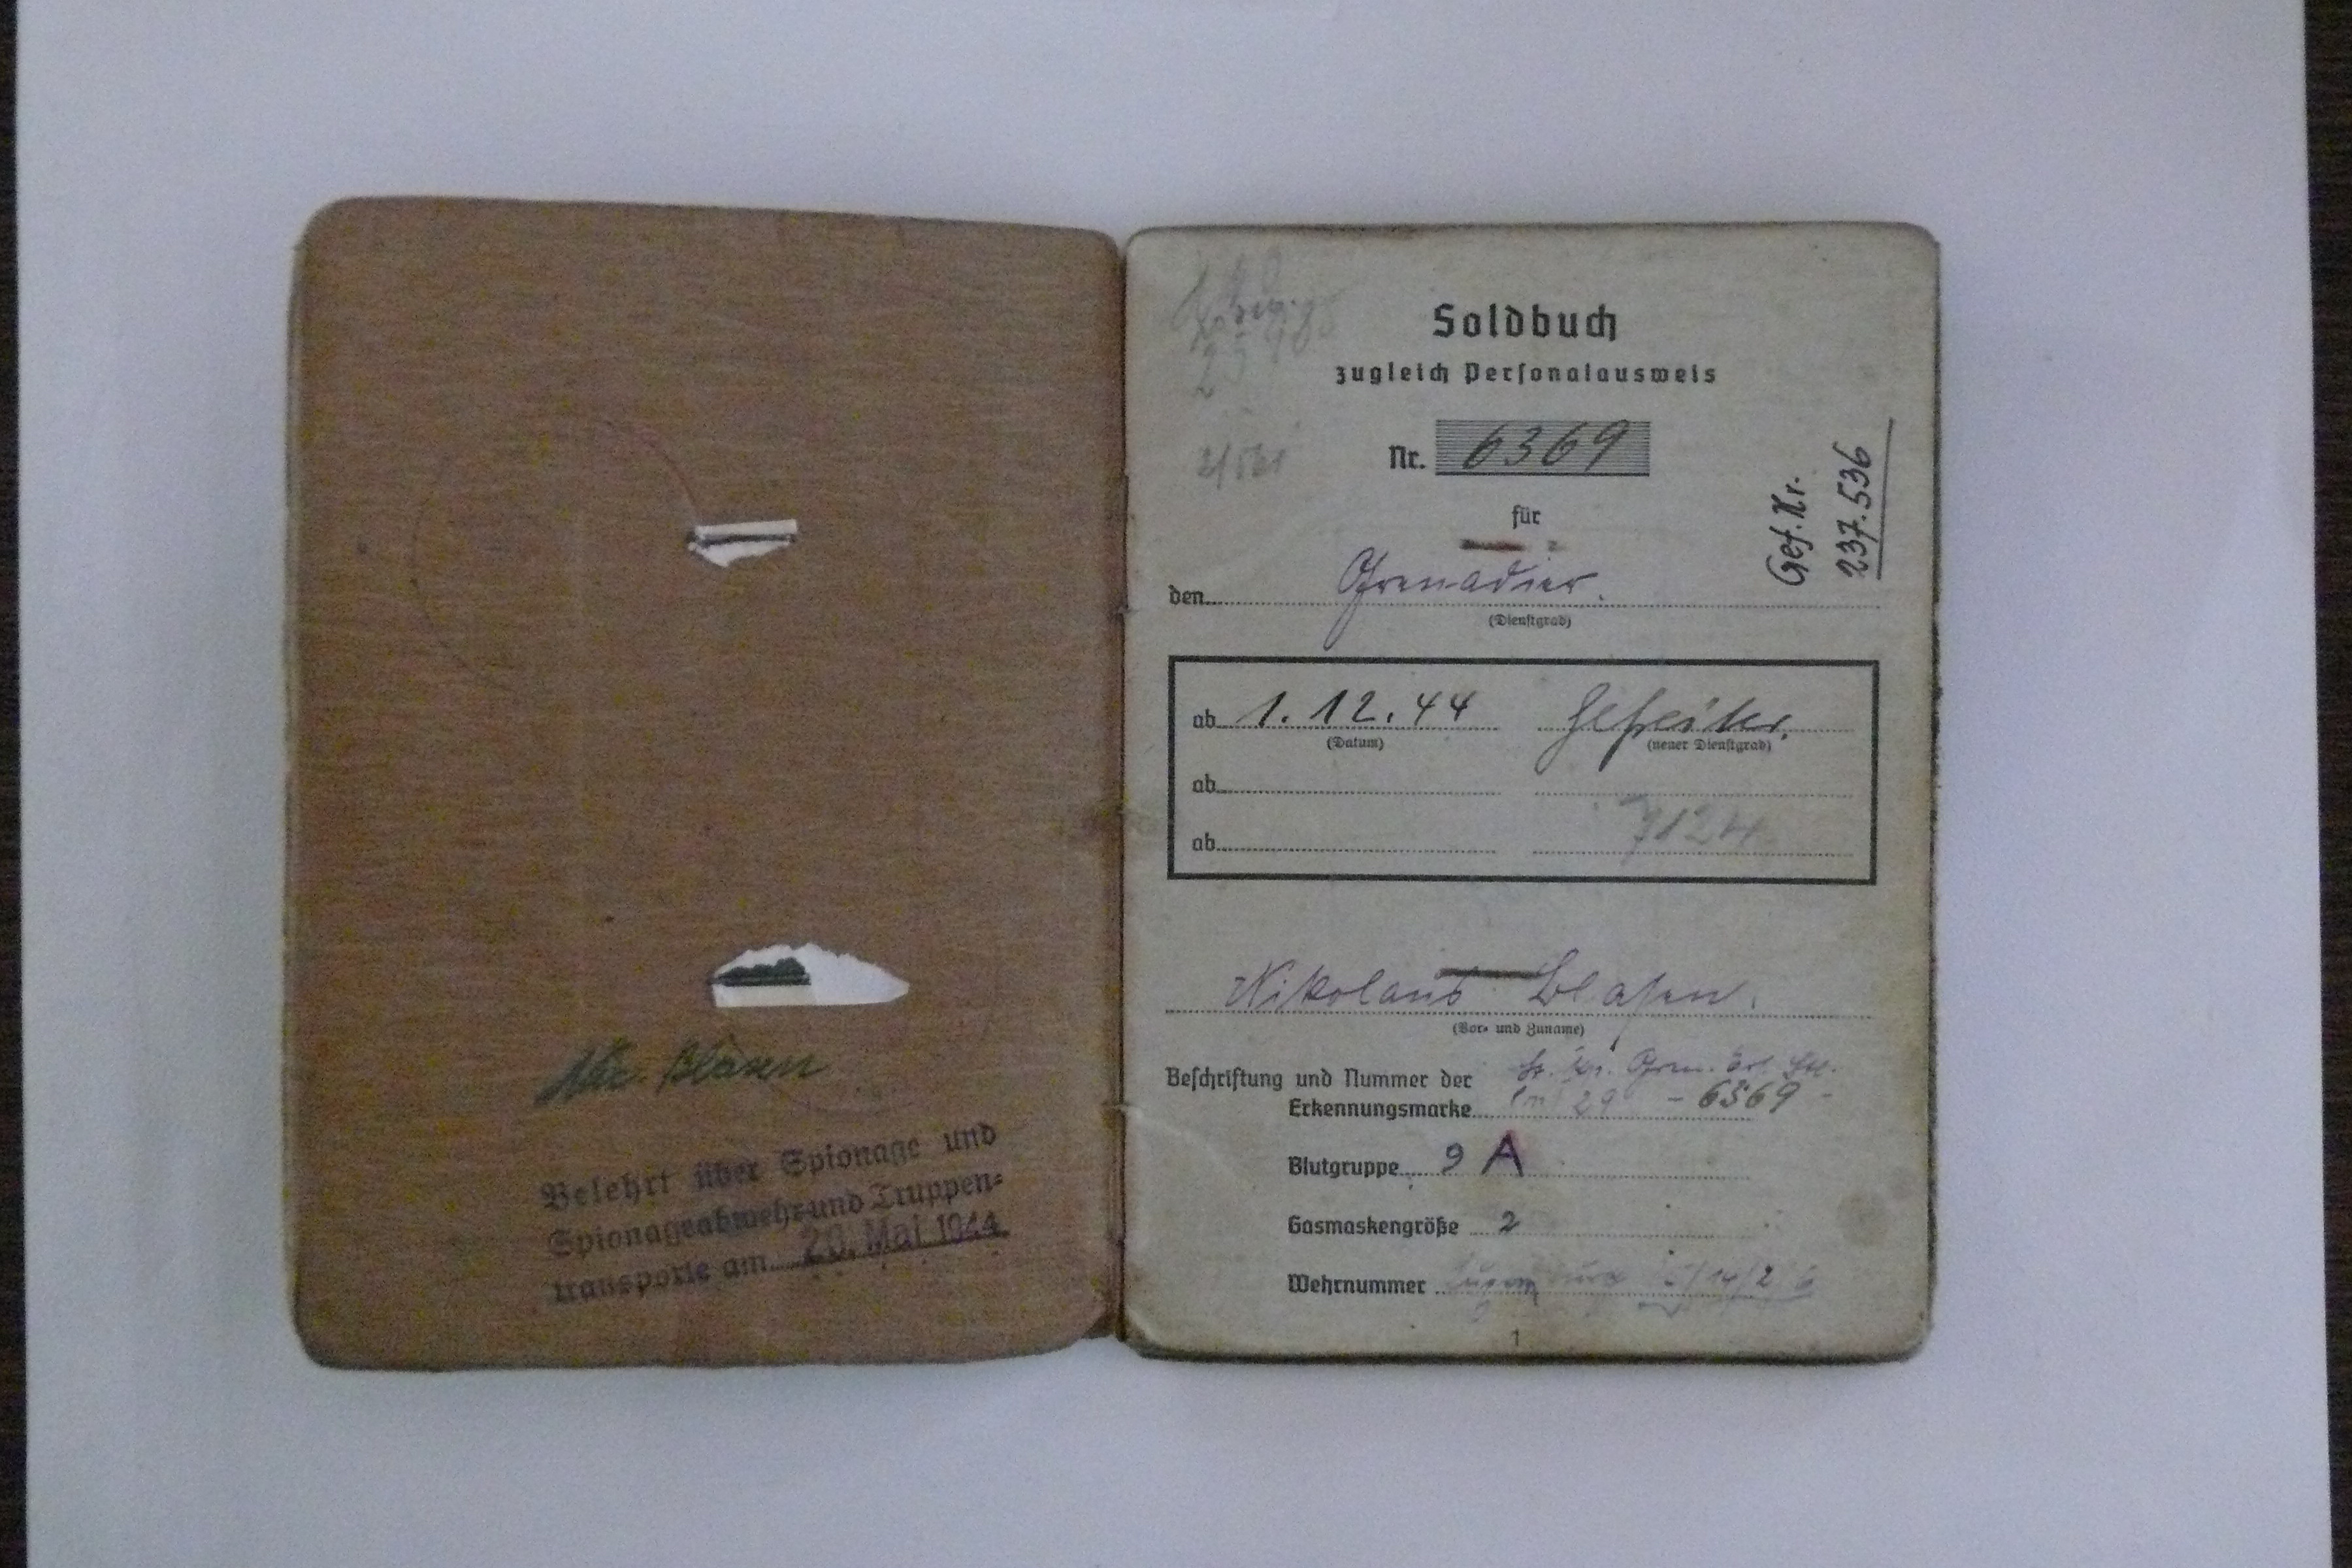 Nic. Blasen
Belehrt über Spionage und
Spionageabwehr und Truppen-
transporte am 20. Mai 1944
Soldbuch
zugleich Personalausweis
Nr. 6369
Gef. Nr.
237.536
für
den Grenadier.
(Dienstgrad)
ab 1.12.44 Gefreiter.
(Datum) (neuer Dienstgrad)
ab
7124
ab
Nikolaus Blasen.
(Vor- und Zuname)
Beschriftung und Nummer der
Erkennungsmarke 29 - 6369 -
Blutgruppe A
Gasmaskengröße 2
Wehrnummer
1